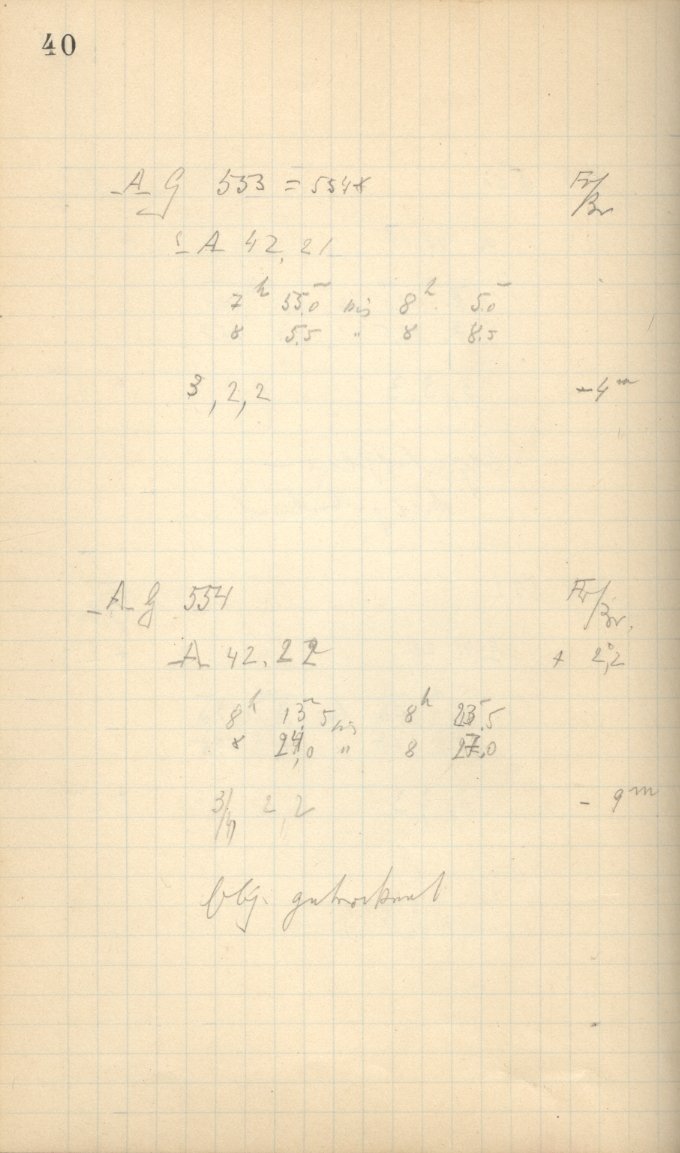 40
A G 553 = 554x Fr/Br
A 42,21
7h 55,0 bis 8h 5,0
8 5,5 " 8 8,5
3, 2, 2 -4m
A G 554 Fr/Br.
A 42.22 + 2,2
8h 13,5 bis 8h 23,5
8 24,0 " 8 27,0
3/4 2,2 - 9m
Obj. getrocknet